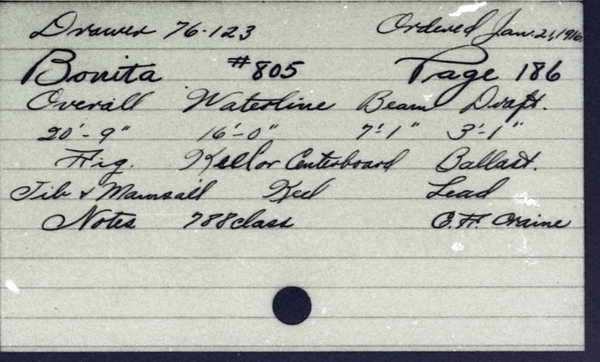 Drawer 76-123 Ordered Jan. 21, 1916
Bonita #805 Page 186
Overall Waterline Beam Draft.
20'-9" 16'-0" 7'-1" 3'-1"
Rig. Keel or Centerboard Ballast.
Jib & Mainsail Keel Lead
Notes 788 class C. H. Craine